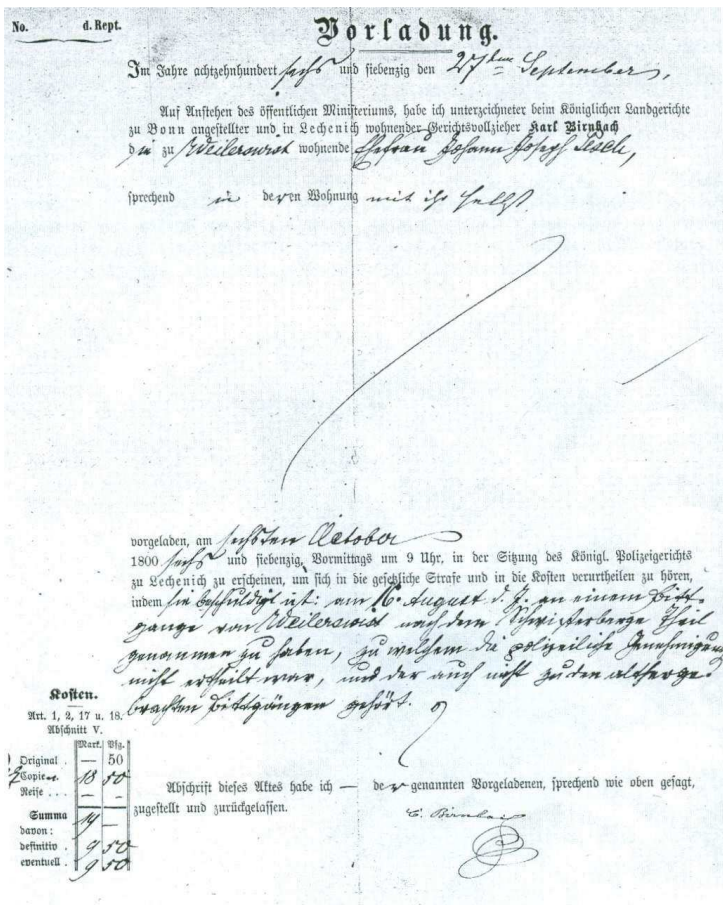 No. d. Rept.
Vorladung.
Im Jahre achtzehnhundert sechs und siebenzig den 27ten September,
Auf Anstehen des öffentlichen Ministeriums, habe ich unterzeichneter beim Königlichen Landgerichte
zu Bonn angestellter und in Lechenich wohnender Gerichtsvollzieher Karl Birnbach
die zu Weilerswist wohnende Ehefrau Johann Joseph
sprechend in deren Wohnung mit ihr selbst
vorgeladen, am sechsten October
1800 sechs und siebenzig, Vormittags um 9 Uhr, in der Sitzung des Königl. Polizeigerichts
zu Lechenich zu erscheinen, um sich in die gesetzliche Strafe und in die Kosten verurtheilen zu hören,
indem sie beschuldigt ist: am 16. August d. J. an einem Bitt-
gange von Weilerswist nach dem Schwisterberge Theil
genommen zu haben, zu welchem die polizeiliche Genehmigung
nicht ertheilt war, und der auch nicht zu den altherge-
brachten Bittgängen gehört.
Kosten.
Art. 1, 2, 17 u. 18.
Abschnitt V.
Mark. Pfg.
Original . — 50
Copien. 18 50
Reise . . . — —
Summa 19 —
davon:
definitiv . 9 50
eventuell . 9 50
Abschrift dieses Aktes habe ich — der genannten Vorgeladenen, sprechend wie oben gesagt,
zugestellt und zurückgelassen.
C. Birnbach